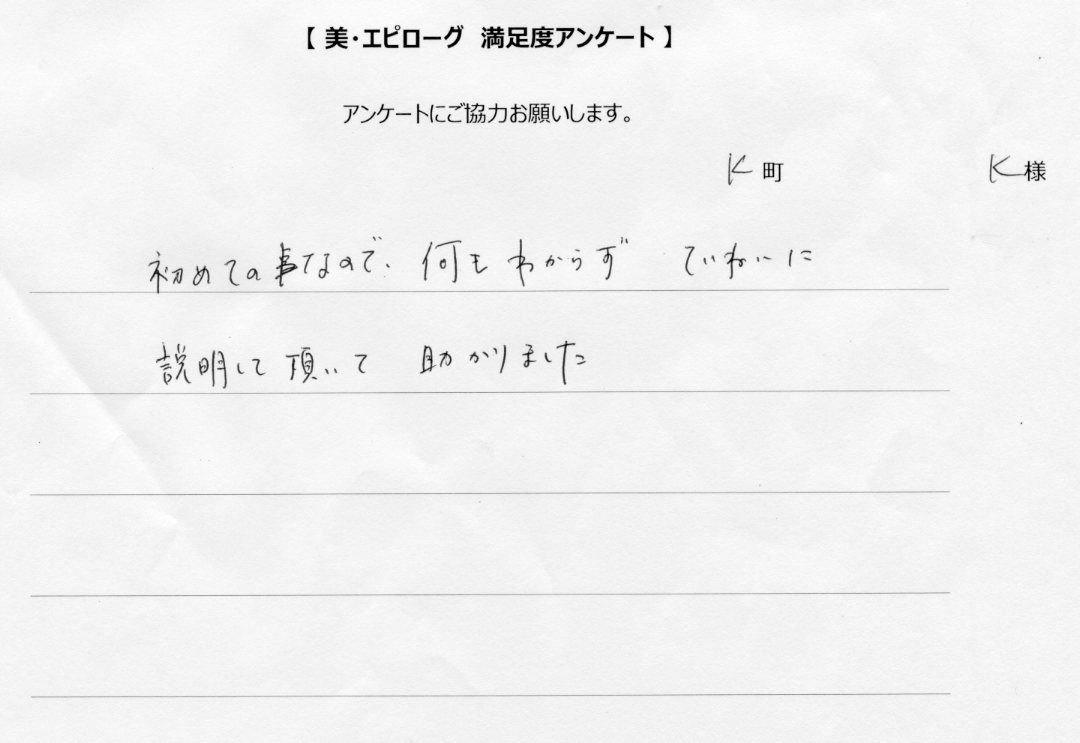 【 美・エピローグ　満足度アンケート 】
アンケートにご協力お願いします。
K 町　K 様
初めての事なので、何もわからず　ていねいに
説明して頂いて　助かりました